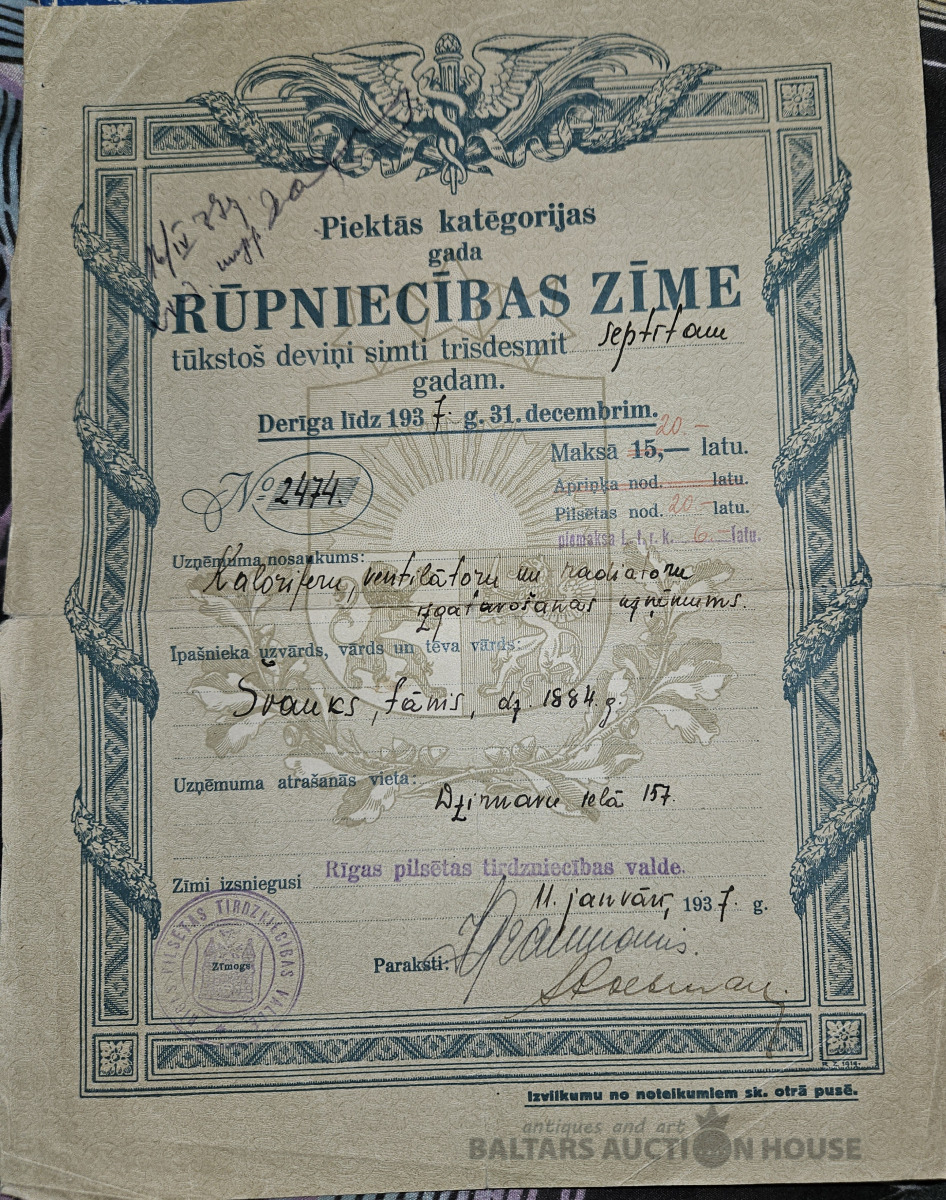 16/IV
Piektās katēgorijas
gada
RŪPNIECĪBAS ZĪME
tūkstoš deviņi simti trīsdesmit septītam
gadam.
Derīga līdz 1937. g. 31. decembrim.
20.-
Maksā 15,— latu.
Apriņķa nod. latu.
№ 2474.
Pilsētas nod. 20.- latu.
piemaksa L. t. r. k. 6.- latu.
Uzņēmuma nosaukums:
Kaloriferu, ventilātoru un radiatoru
izgatavošanas uzņēmums.
Īpašnieka uzvārds, vārds un tēva vārds:
Svauks, Jānis, dz. 1884. g.
Uzņēmuma atrašanās vieta:
Dzirnavu ielā 157.
Zīmi izsniegusi Rīgas pilsētas tirdzniecības valde.
11. janvārī, 1937. g.
RĪGAS PILSĒTAS TIRDZNIECĪBAS VALDE
Zīmogs
Paraksti:
Izvilkumu no noteikumiem sk. otrā pusē.
antiques and art
BALTARS AUCTION HOUSE